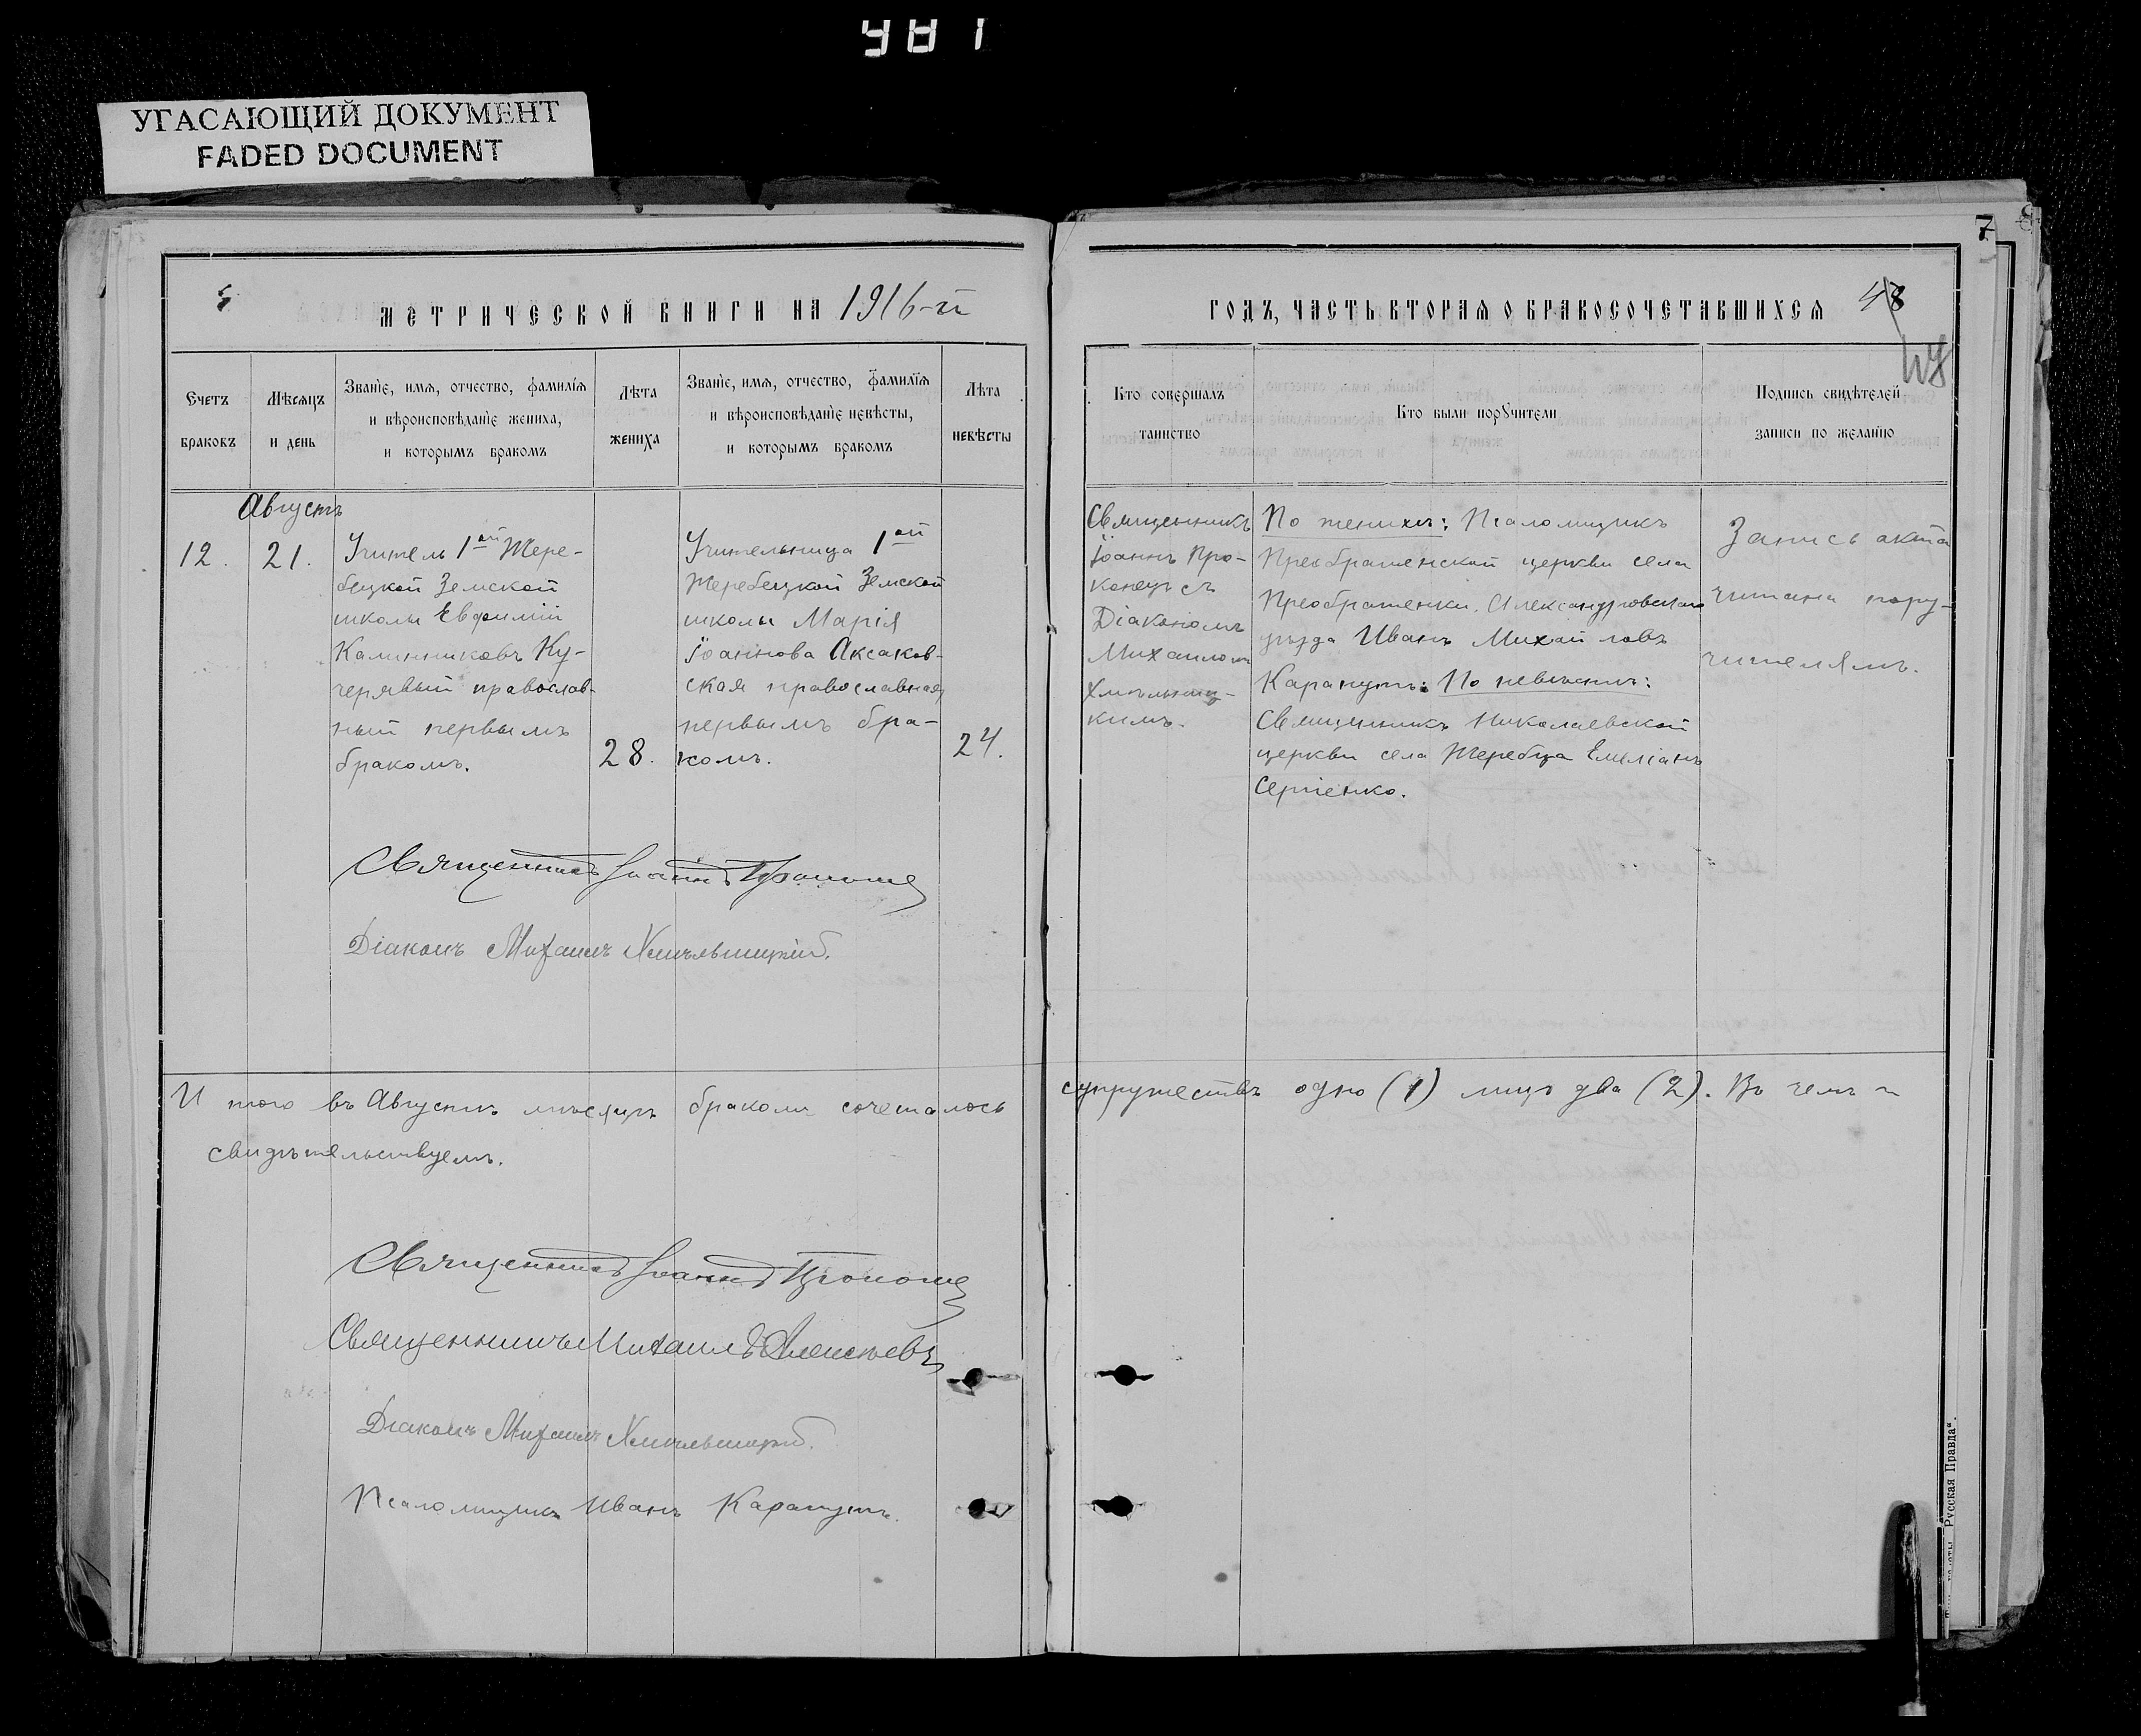 481
УГАСАЮЩИЙ ДОКУМЕНТ
FADED DOCUMENT
7 8
МЕТРИЧЕСКОЙ КНИГИ НА 1916-й
Счетъ браковъ
Мѣсяцъ и день
Званіе, имя, отчество, фамилія
и вѣроисповѣданіе жениха,
и которымъ бракомъ
Лѣта жениха
Званіе, имя, отчество, фамилія
и вѣроисповѣданіе невѣсты,
и которымъ бракомъ
Лѣта невѣсты
Августъ
12.
21.
Учитель 1ой Жере-
бецкой Земской
школы Евфимій
Калинниковъ Ку-
черявый православ-
ный первымъ
бракомъ.
28.
Учительница 1ой
Жеребецкой Земской
школы Марія
Іоаннова Аксаков-
ская православная,
первымъ бра-
комъ.
24.
Священникъ Іоаннъ Прокопе
Діаконъ Михаилъ Хмѣльницкій.
И того въ Августѣ мѣсяцѣ бракомъ сочеталось
свидѣтельствуемъ.
Священникъ Іоаннъ
Священникъ Михаилъ Алексѣевъ
Діаконъ Михаилъ Хмѣльницкій.
Псаломщикъ Иванъ Карапутъ.
ГОДЪ, ЧАСТЬ ВТОРАЯ О БРАКОСОЧЕТАВШИХСЯ 48
48
Кто совершалъ
таинство
Кто были поручители
Подпись свидѣтелей
записи по желанію
Священникъ
Іоаннъ Про-
копецъ съ
Діакономъ
Михаиломъ
Хмѣльниц-
кимъ.
По женихѣ: Псаломщикъ
Преображенской церкви села
Преображенки, Александровскаго
уѣзда Иванъ Михайловъ
Карапутъ: По невѣстѣ:
Священникъ Николаевской
церкви села Жеребца Емеліанъ
Сергіенко.
Запись акта
читана пору-
чителямъ.
супружествъ одно (1) лицъ два (2). Въ чемъ и
Русская Правда".